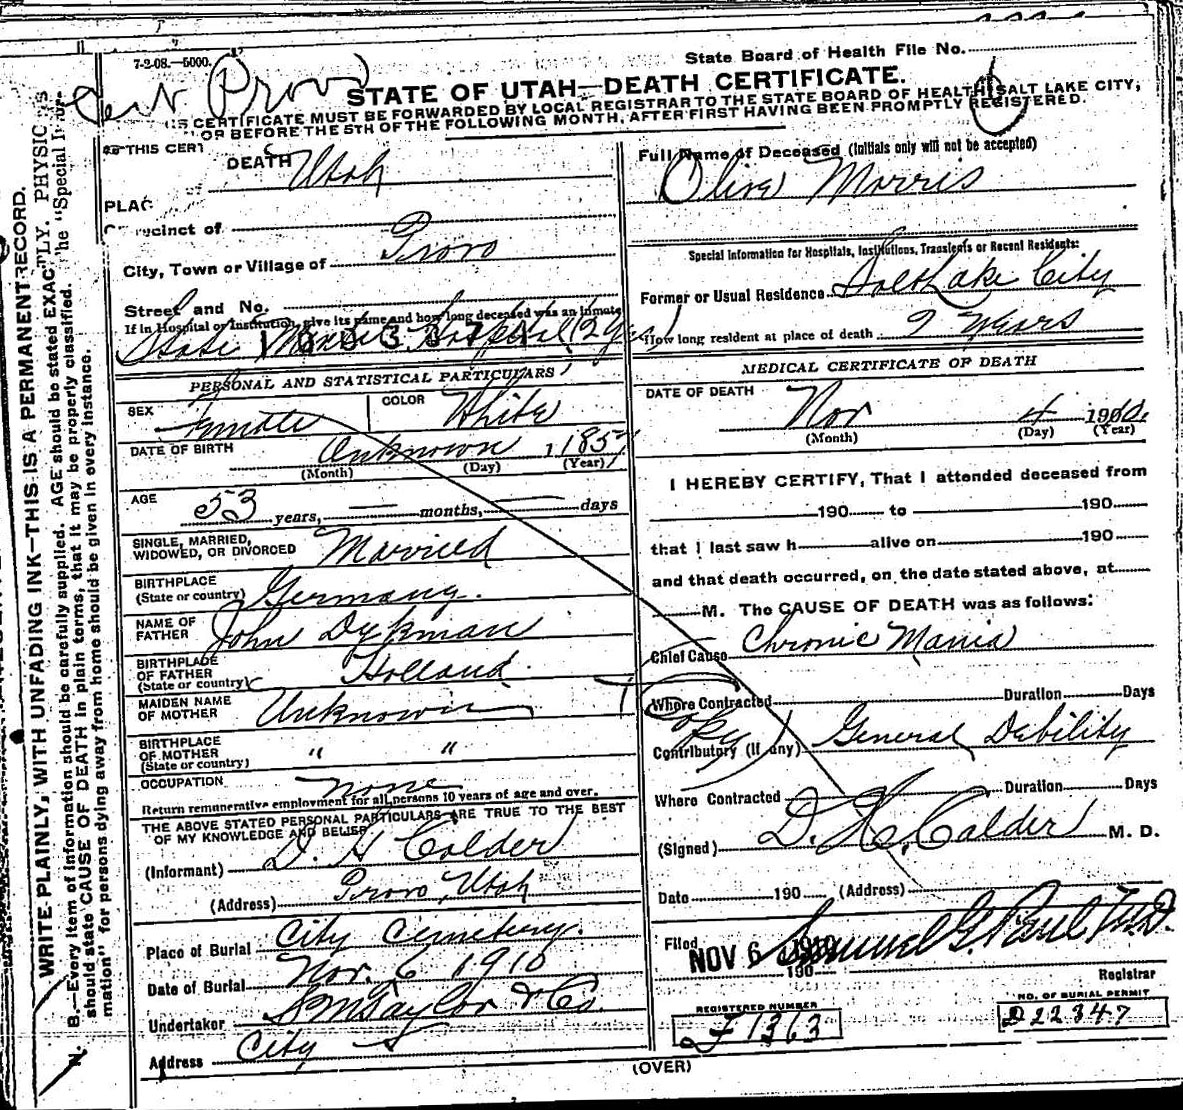 7-2-08.—5000.
State Board of Health File No.
Provo
STATE OF UTAH—DEATH CERTIFICATE.
CERTIFICATE MUST BE FORWARDED BY LOCAL REGISTRAR TO THE STATE BOARD OF HEALTH, SALT LAKE CITY,
OR BEFORE THE 5TH OF THE FOLLOWING MONTH, AFTER FIRST HAVING BEEN PROMPTLY REGISTERED.
THIS CERT
DEATH Utah
PLAC
recinct of
City, Town or Village of Provo
Street and No.
If in Hospital or Institution, give its name and how long deceased was an inmate
State Mental Hospital (2 yrs)
PERSONAL AND STATISTICAL PARTICULARS
SEX Female COLOR White
DATE OF BIRTH Unknown, 1857
(Month) (Day) (Year)
AGE 53 years, — months, — days
SINGLE, MARRIED, WIDOWED, OR DIVORCED Married
BIRTHPLACE (State or country) Germany.
NAME OF FATHER John Dykman
BIRTHPLACE OF FATHER (State or country) Holland.
MAIDEN NAME OF MOTHER Unknown
BIRTHPLACE OF MOTHER (State or country) " "
OCCUPATION None
Return remunerative employment for all persons 10 years of age and over.
THE ABOVE STATED PERSONAL PARTICULARS ARE TRUE TO THE BEST
OF MY KNOWLEDGE AND BELIEF
(Informant) D. H Calder
(Address) Provo, Utah
Place of Burial City Cemetery.
Date of Burial Nov. 6 1910
Undertaker S M Taylor & Co.
Address City
Full Name of Deceased (Initials only will not be accepted)
Olive Morris
Special Information for Hospitals, Institutions, Transients or Recent Residents:
Former or Usual Residence Salt Lake City
How long resident at place of death 2 Years
MEDICAL CERTIFICATE OF DEATH
DATE OF DEATH Nov 4 1910.
(Month) (Day) (Year)
I HEREBY CERTIFY, That I attended deceased from
190 to 190
that I last saw h alive on 190
and that death occurred, on the date stated above, at
M. The CAUSE OF DEATH was as follows:
Chief Cause Chronic Mania
Where Contracted Duration Days
Contributory (if any) General Debility
Where Contracted Duration Days
(Signed) D. H. Calder M. D.
Date 190 (Address)
Filed NOV 6 1910 190 Samuel G. Paul M.D.
Registrar
REGISTERED NUMBER
F1363
NO. OF BURIAL PERMIT
D22347
(OVER)
WRITE PLAINLY, WITH UNFADING INK—THIS IS A PERMANENT RECORD.
N. B.—Every item of information should be carefully supplied. AGE should be stated EXACTLY. PHYSIC
should state CAUSE OF DEATH in plain terms, that it may be properly classified. The "Special Infor-
mation" for persons dying away from home should be given in every instance.